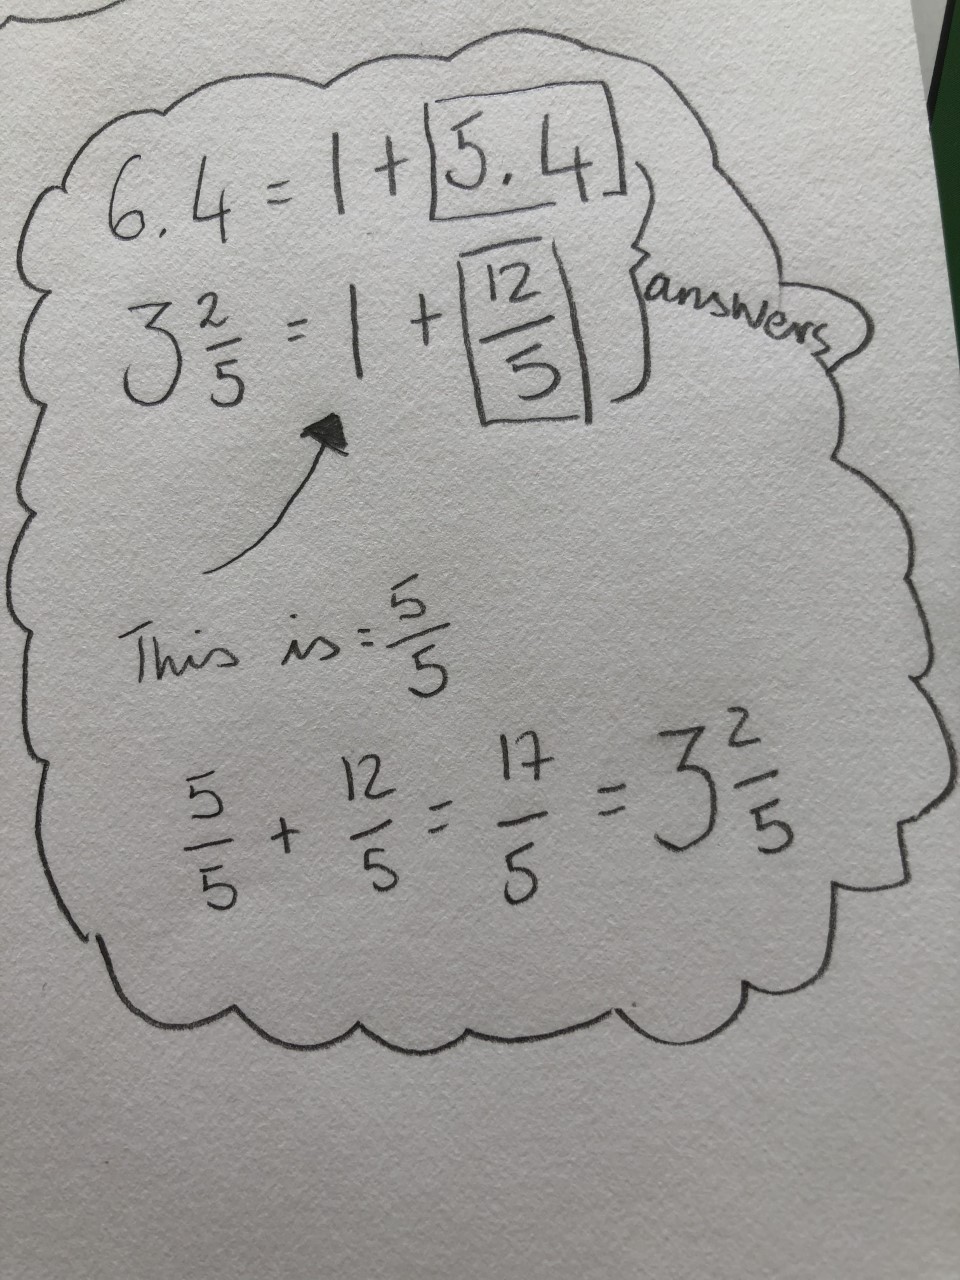 6.4 = 1 + 5.4
3 2/5 = 1 + 12/5
answers
This is = 5/5
5/5 + 12/5 = 17/5 = 3 2/5